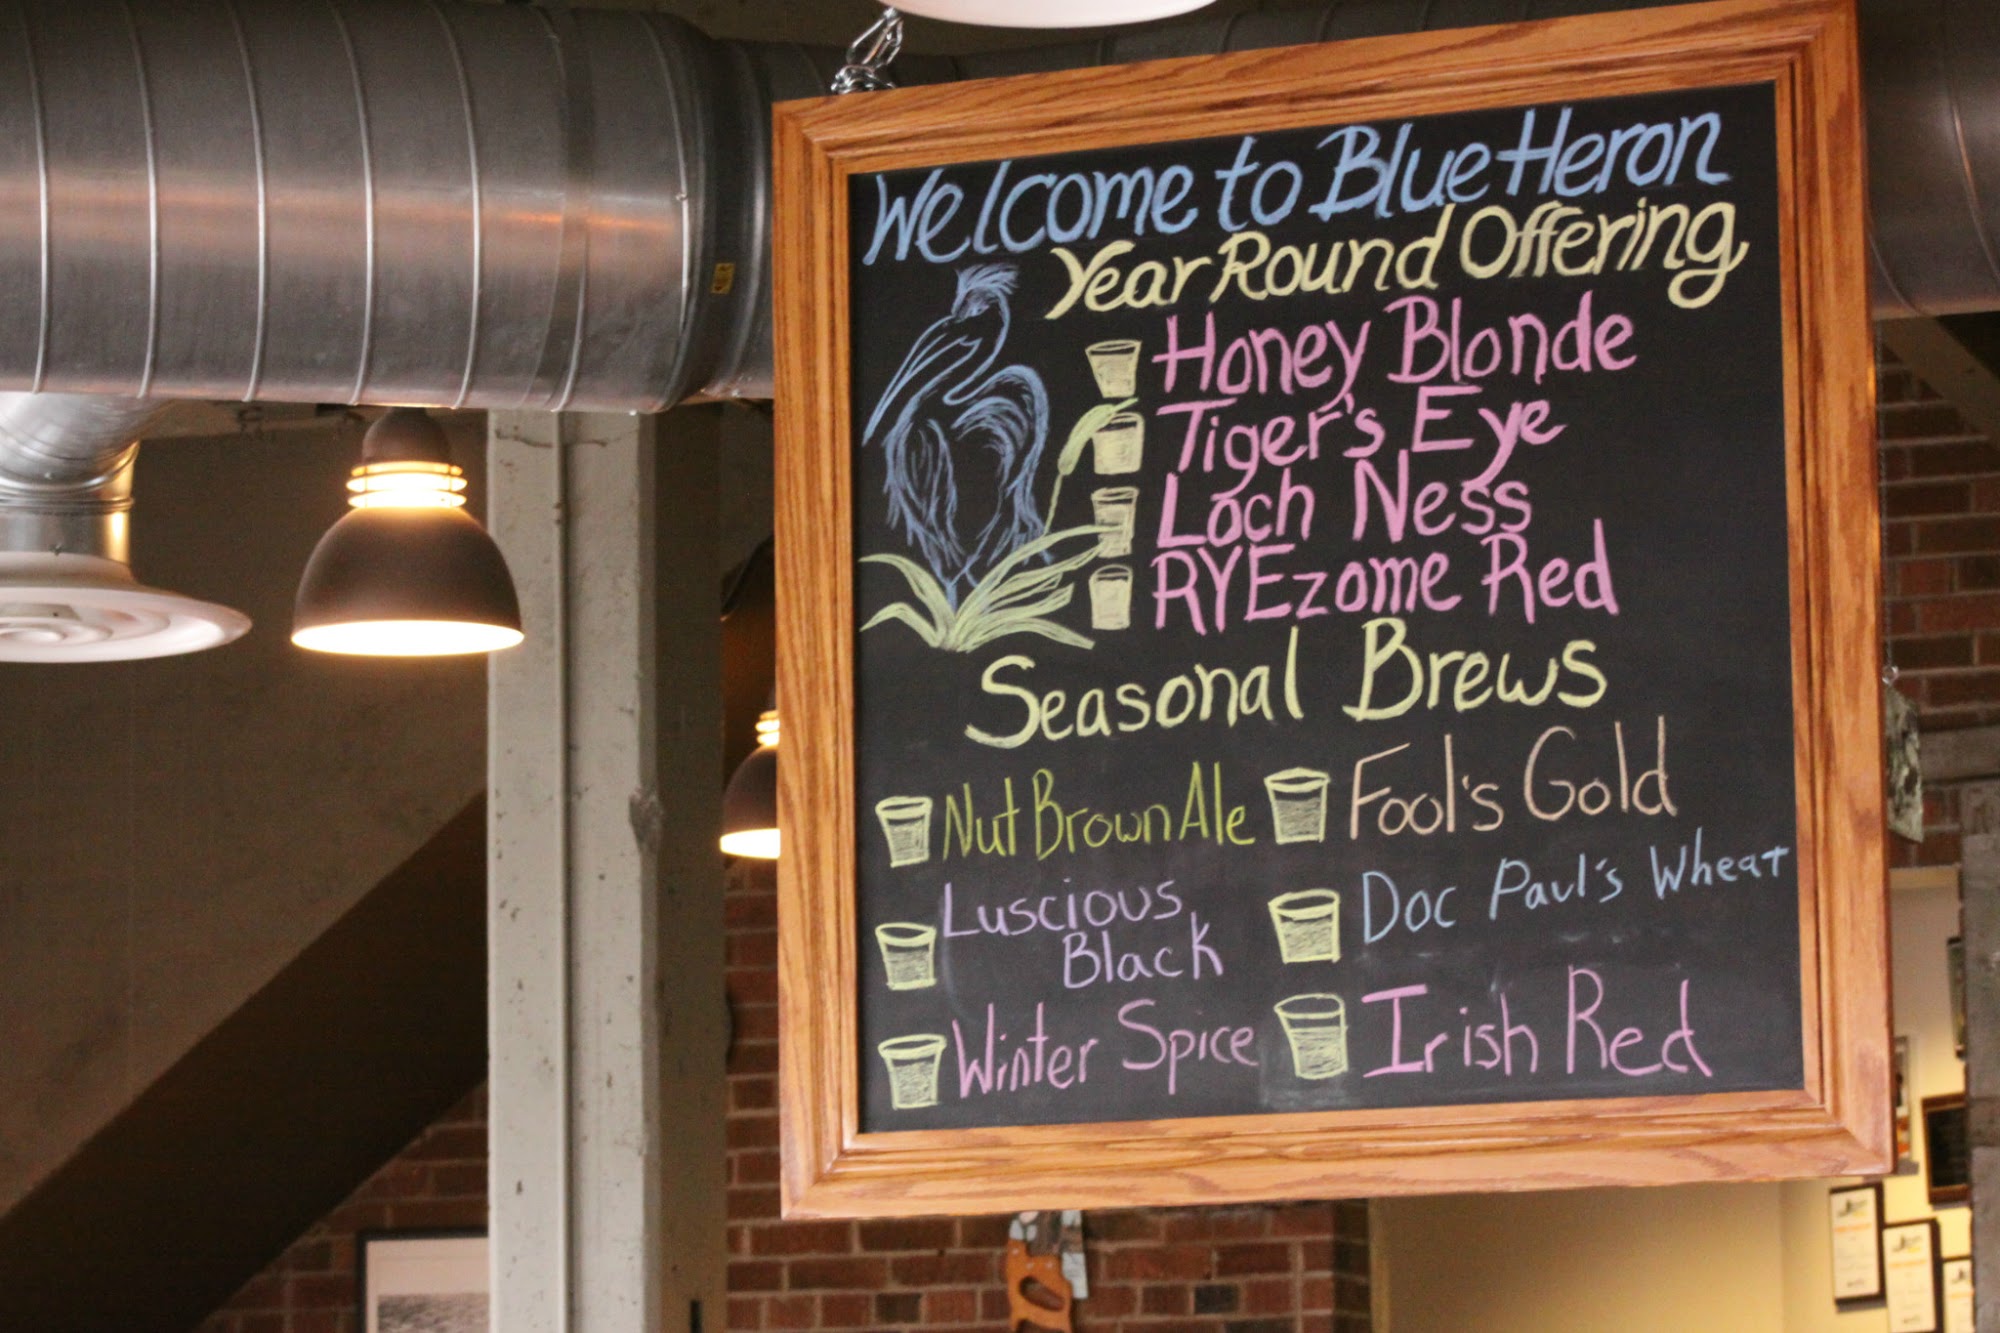 Welcome to Blue Heron
Year Round Offering
Honey Blonde
Tiger's Eye
Loch Ness
RYEzome Red
Seasonal Brews
Nut Brown Ale
Fool's Gold
Luscious
Black
Doc Paul's Wheat
Winter Spice
Irish Red